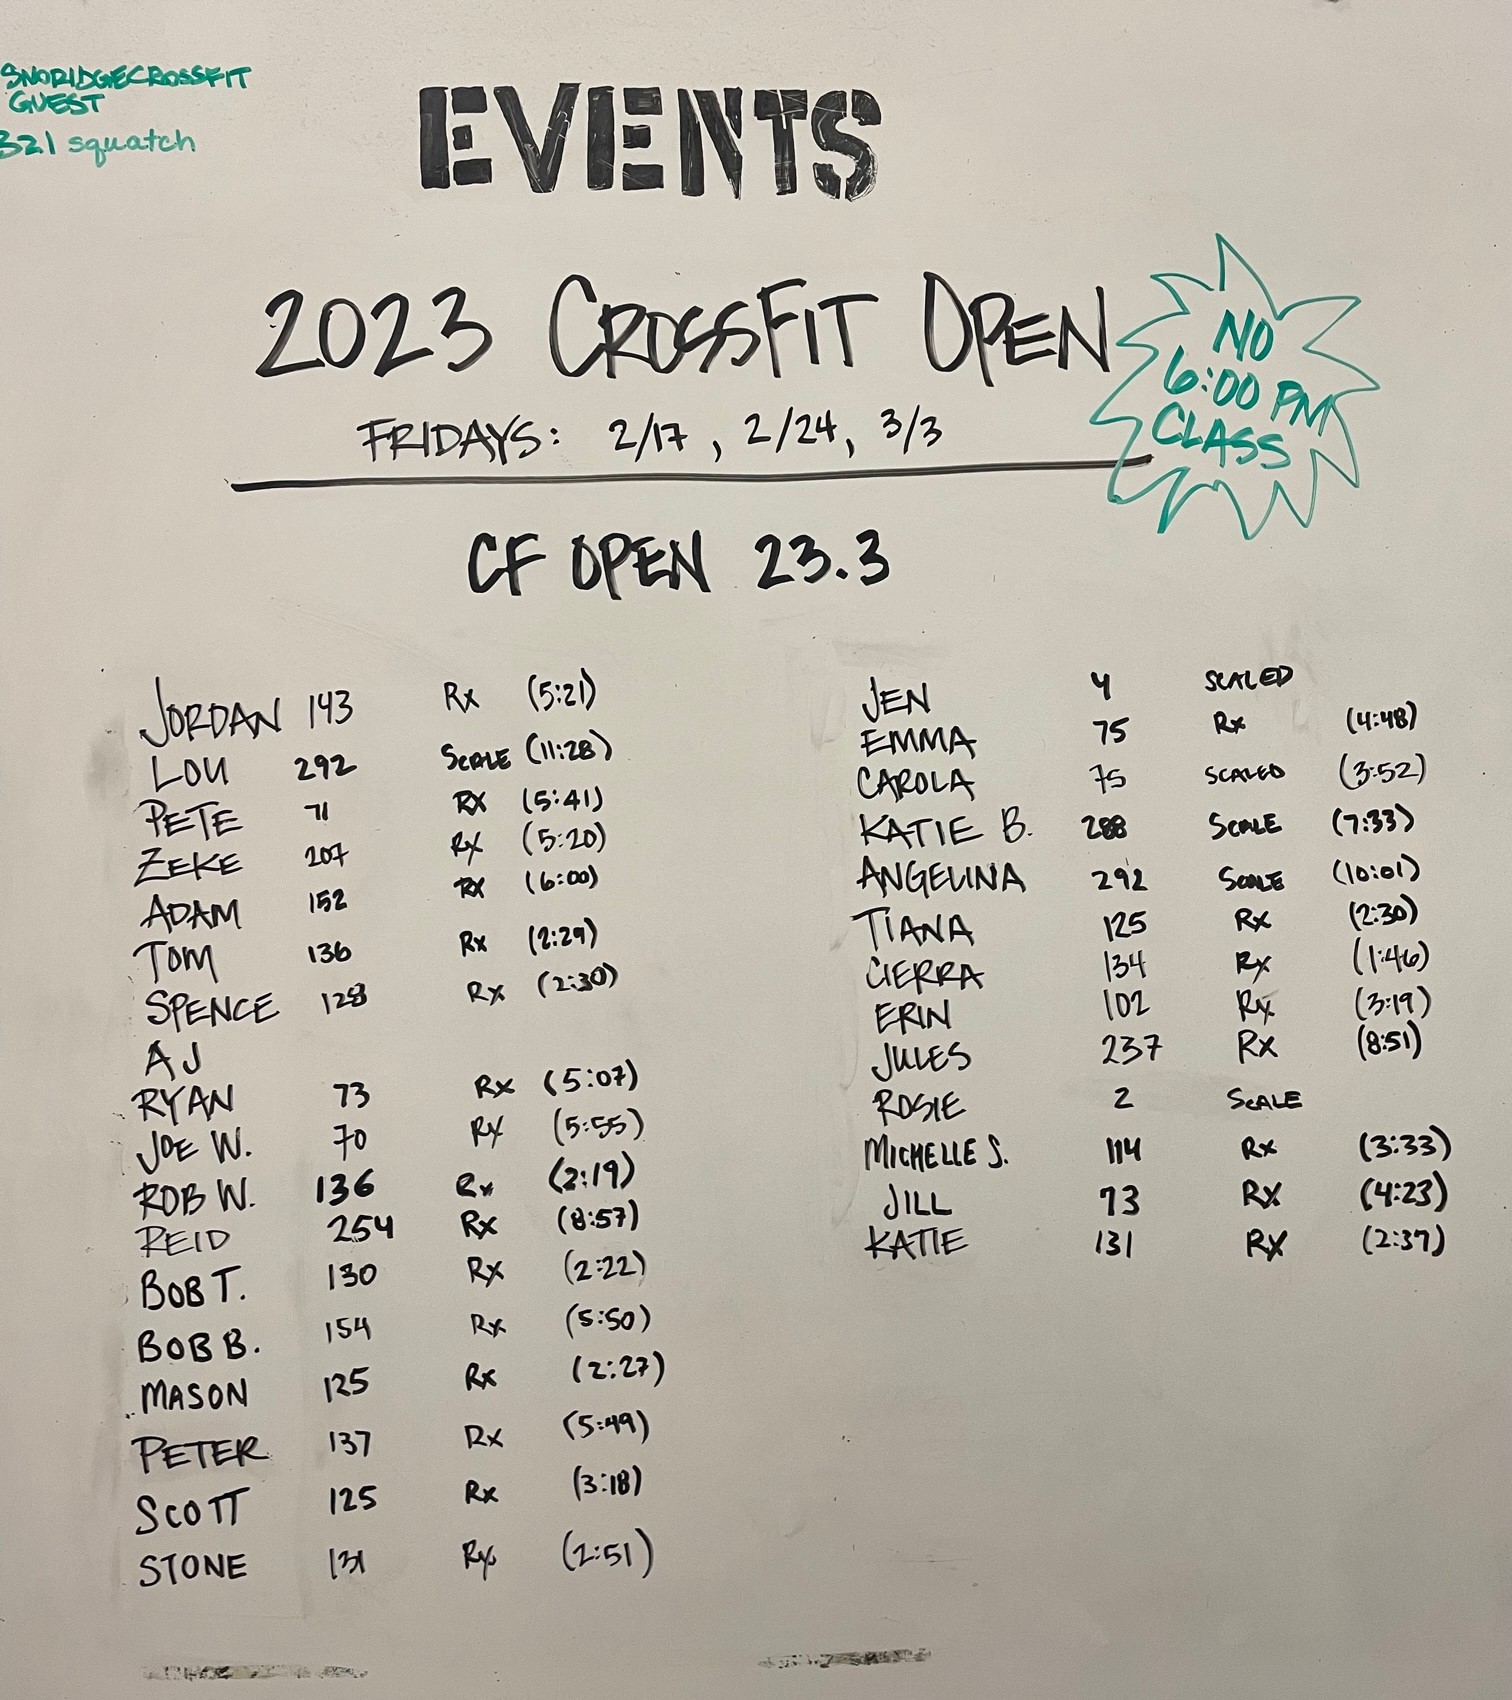 SNORIDGECROSSFIT
GUEST
321 squatch
EVENTS
2023 CROSSFIT OPEN
FRIDAYS: 2/17, 2/24, 3/3
NO
6:00 PM
CLASS
CF OPEN 23.3
JORDAN 143 Rx (5:21)
LOU 292 SCALE (11:28)
PETE 71 RX (5:41)
ZEKE 207 RX (5:20)
ADAM 152 RX (6:00)
TOM 136 Rx (2:29)
SPENCE 128 Rx (2:30)
AJ
RYAN 73 Rx (5:07)
JOE W. 70 RX (5:55)
ROB W. 136 Rx (2:19)
REID 254 Rx (8:57)
BOB T. 130 Rx (2:22)
BOB B. 154 Rx (5:50)
MASON 125 Rx (2:27)
PETER 137 Rx (5:49)
SCOTT 125 Rx (3:18)
STONE 131 Rx (2:51)
JEN 4 SCALED
EMMA 75 Rx (4:48)
CAROLA 75 SCALED (3:52)
KATIE B. 288 SCALE (7:33)
ANGELINA 292 SCALE (10:01)
TIANA 125 Rx (2:30)
CIERRA 134 Rx (1:46)
ERIN 102 Rx (3:19)
JULES 237 Rx (8:51)
ROSIE 2 SCALE
MICHELLE S. 114 Rx (3:33)
JILL 73 RX (4:23)
KATIE 131 RX (2:37)